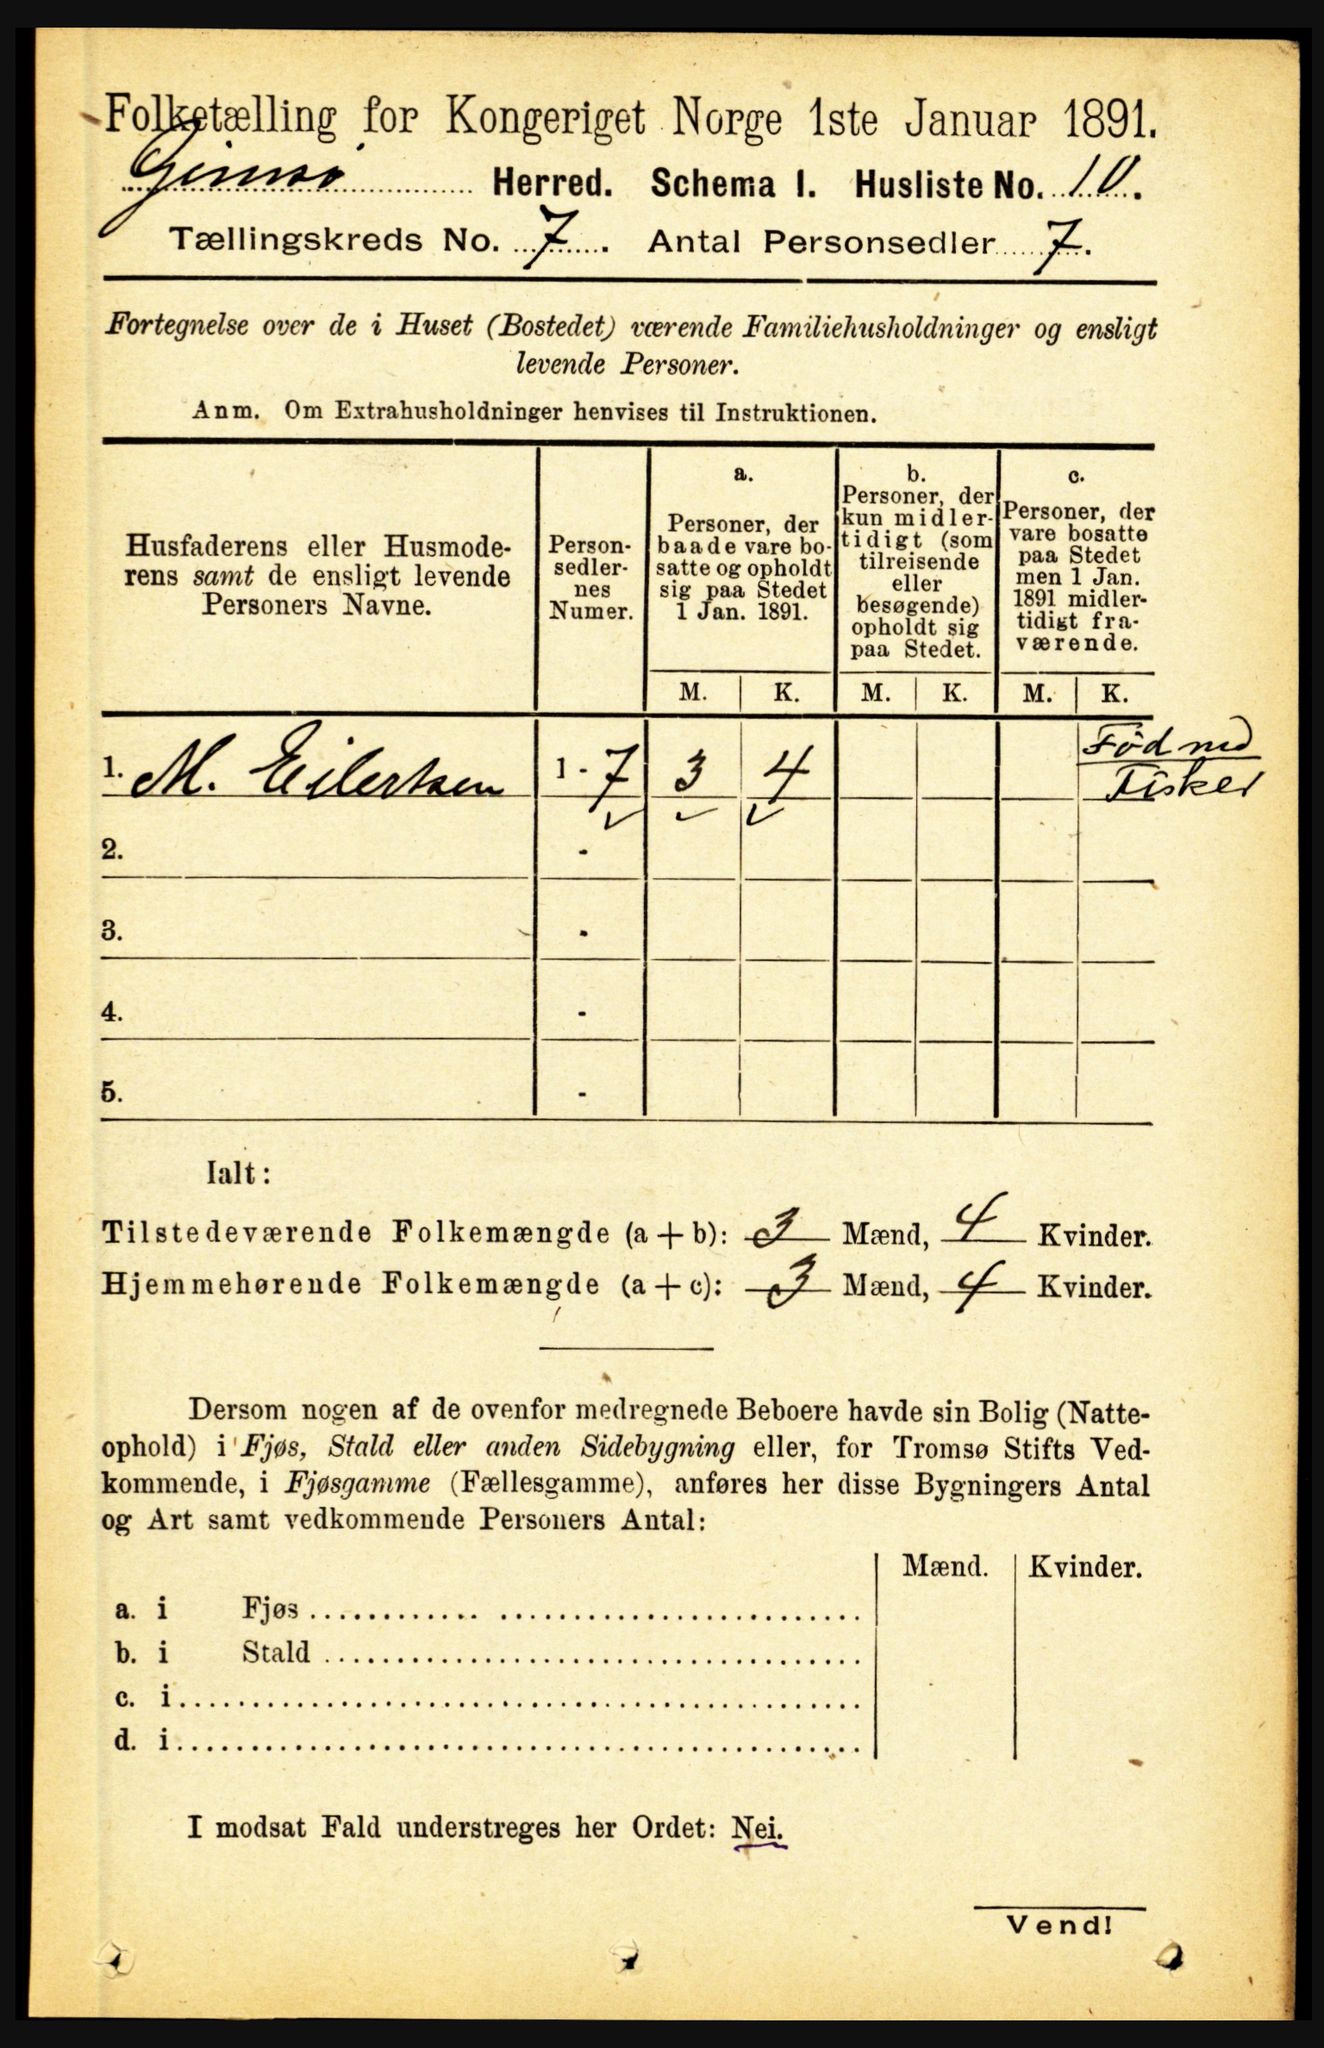 Folketælling for Kongeriget Norge 1ste Januar 1891.
Gimsø Herred. Schema I. Husliste No. 10.
Tællingskreds No. 7. Antal Personsedler 7.
Fortegnelse over de i Huset (Bostedet) værende Familiehusholdninger og ensligt
levende Personer.
Anm. Om Extrahusholdninger henvises til Instruktionen.
Husfaderens eller Husmode-
rens samt de ensligt levende
Personers Navne.
Person-
sedler-
nes
Numer.
a.
Personer, der
baade vare bo-
satte og opholdt
sig paa Stedet
1 Jan. 1891.
b.
Personer, der
kun midler-
tidigt (som
tilreisende
eller
besøgende)
opholdt sig
paa Stedet.
c.
Personer, der
vare bosatte
paa Stedet
men 1 Jan.
1891 midler-
tidigt fra-
værende.
M. K. M. K. M. K.
1. M. Eilertsen 1 - 7 3 4 Fød med
Fisker
2. -
3. -
4. -
5. -
Ialt:
Tilstedeværende Folkemængde (a + b): 3 Mænd, 4 Kvinder.
Hjemmehørende Folkemængde (a + c): 3 Mænd, 4 Kvinder.
Dersom nogen af de ovenfor medregnede Beboere havde sin Bolig (Natte-
ophold) i Fjøs, Stald eller anden Sidebygning eller, for Tromsø Stifts Ved-
kommende, i Fjøsgamme (Fællesgamme), anføres her disse Bygningers Antal
og Art samt vedkommende Personers Antal:
Mænd. Kvinder.
a. i Fjøs
b. i Stald
c. i
d. i
I modsat Fald understreges her Ordet: Nei.
Vend!